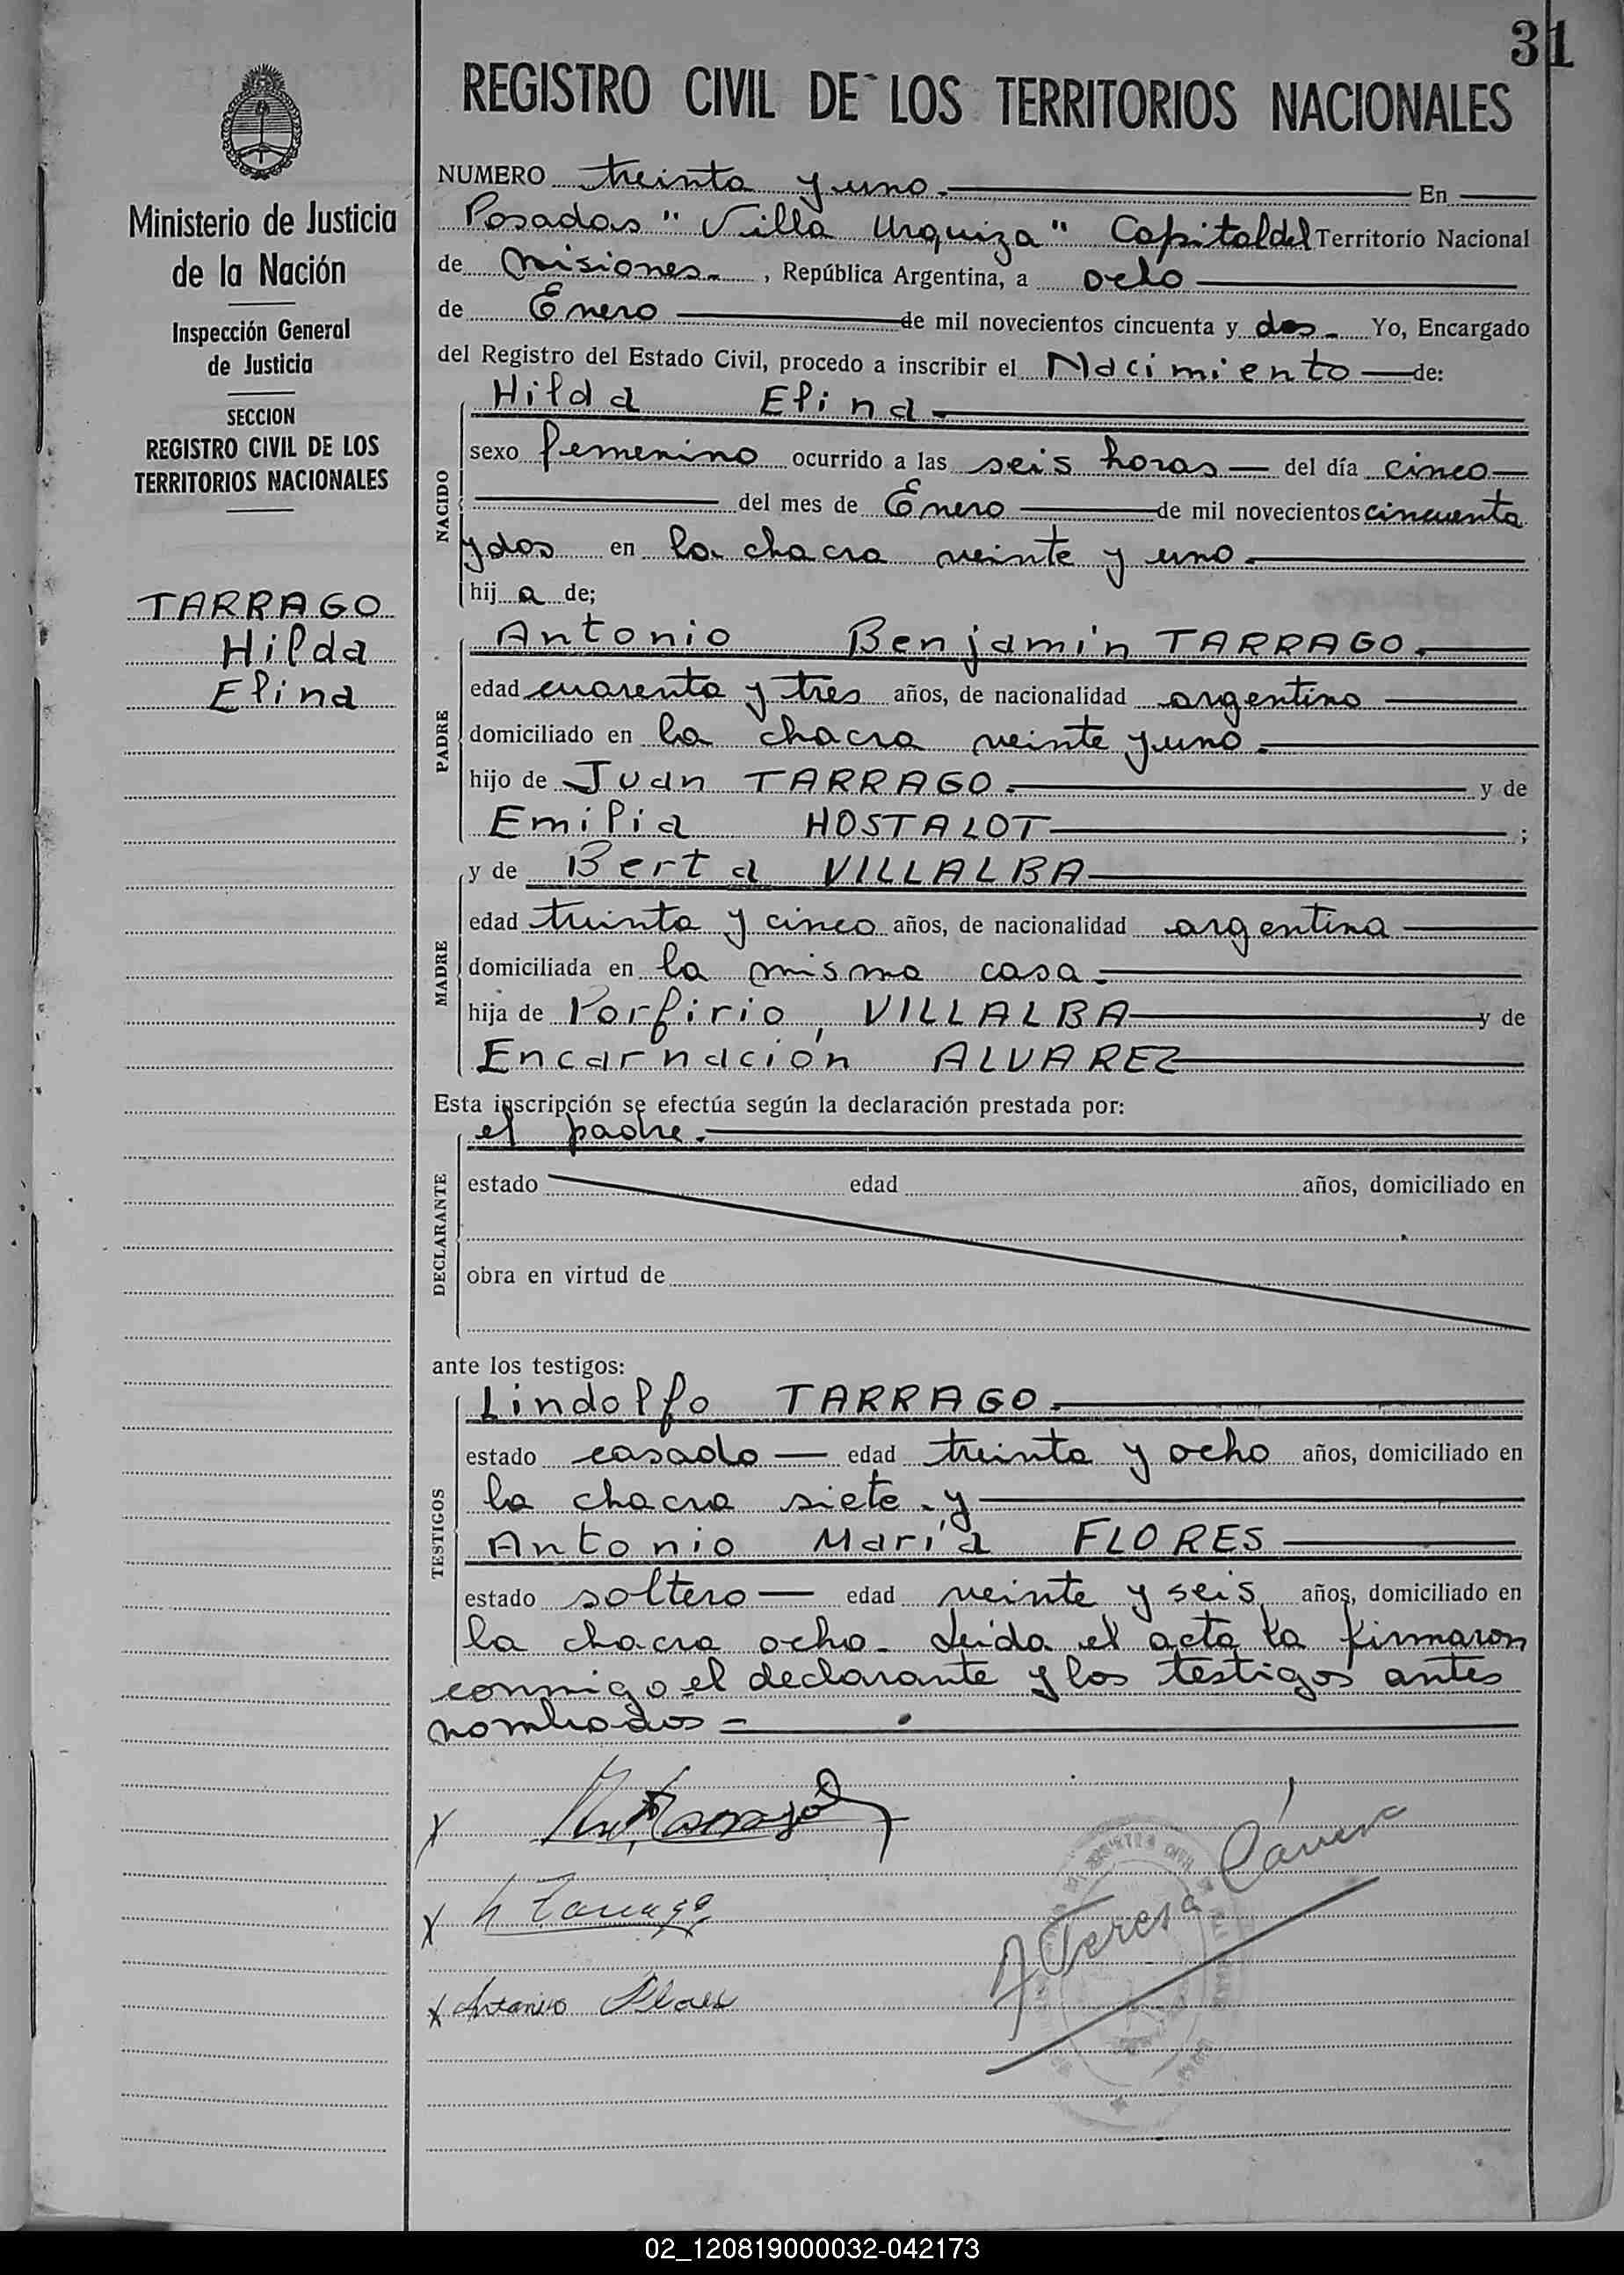 31
REGISTRO CIVIL DE LOS TERRITORIOS NACIONALES
Ministerio de Justicia
de la Nación
Inspección General
de Justicia
SECCION
REGISTRO CIVIL DE LOS
TERRITORIOS NACIONALES
TARRAGO
Hilda
Elina
NUMERO treinta y uno. En
Posadas "Villa Urquiza" Capital del Territorio Nacional
de Misiones. , República Argentina, a ocho
de Enero de mil novecientos cincuenta y dos. Yo, Encargado
del Registro del Estado Civil, procedo a inscribir el Nacimiento de:
NACIDO
Hilda Elina.
sexo femenino ocurrido a las seis horas del día cinco
del mes de Enero de mil novecientos cincuenta
y dos en la chacra veinte y uno.
hij a de;
PADRE
Antonio Benjamín TARRAGO.
edad cuarenta y tres años, de nacionalidad argentino
domiciliado en la chacra veinte y uno.
hijo de Juan TARRAGO. y de
Emilia HOSTALOT ;
MADRE
y de Berta VILLALBA
edad treinta y cinco años, de nacionalidad argentina
domiciliada en la misma casa.
hija de Porfirio VILLALBA y de
Encarnación ALVAREZ
Esta inscripción se efectúa según la declaración prestada por:
DECLARANTE
el padre.
estado edad años, domiciliado en
obra en virtud de
ante los testigos:
TESTIGOS
Lindolfo TARRAGO.
estado casado edad treinta y ocho años, domiciliado en
la chacra siete. y
Antonio María FLORES
estado soltero edad veinte y seis años, domiciliado en
la chacra ocho. Leida el acta la firmaron
conmigo el declarante y los testigos antes
nombrados
X
X L Tarrago
X Antonio Flores
A Teresa
02_120819000032-042173